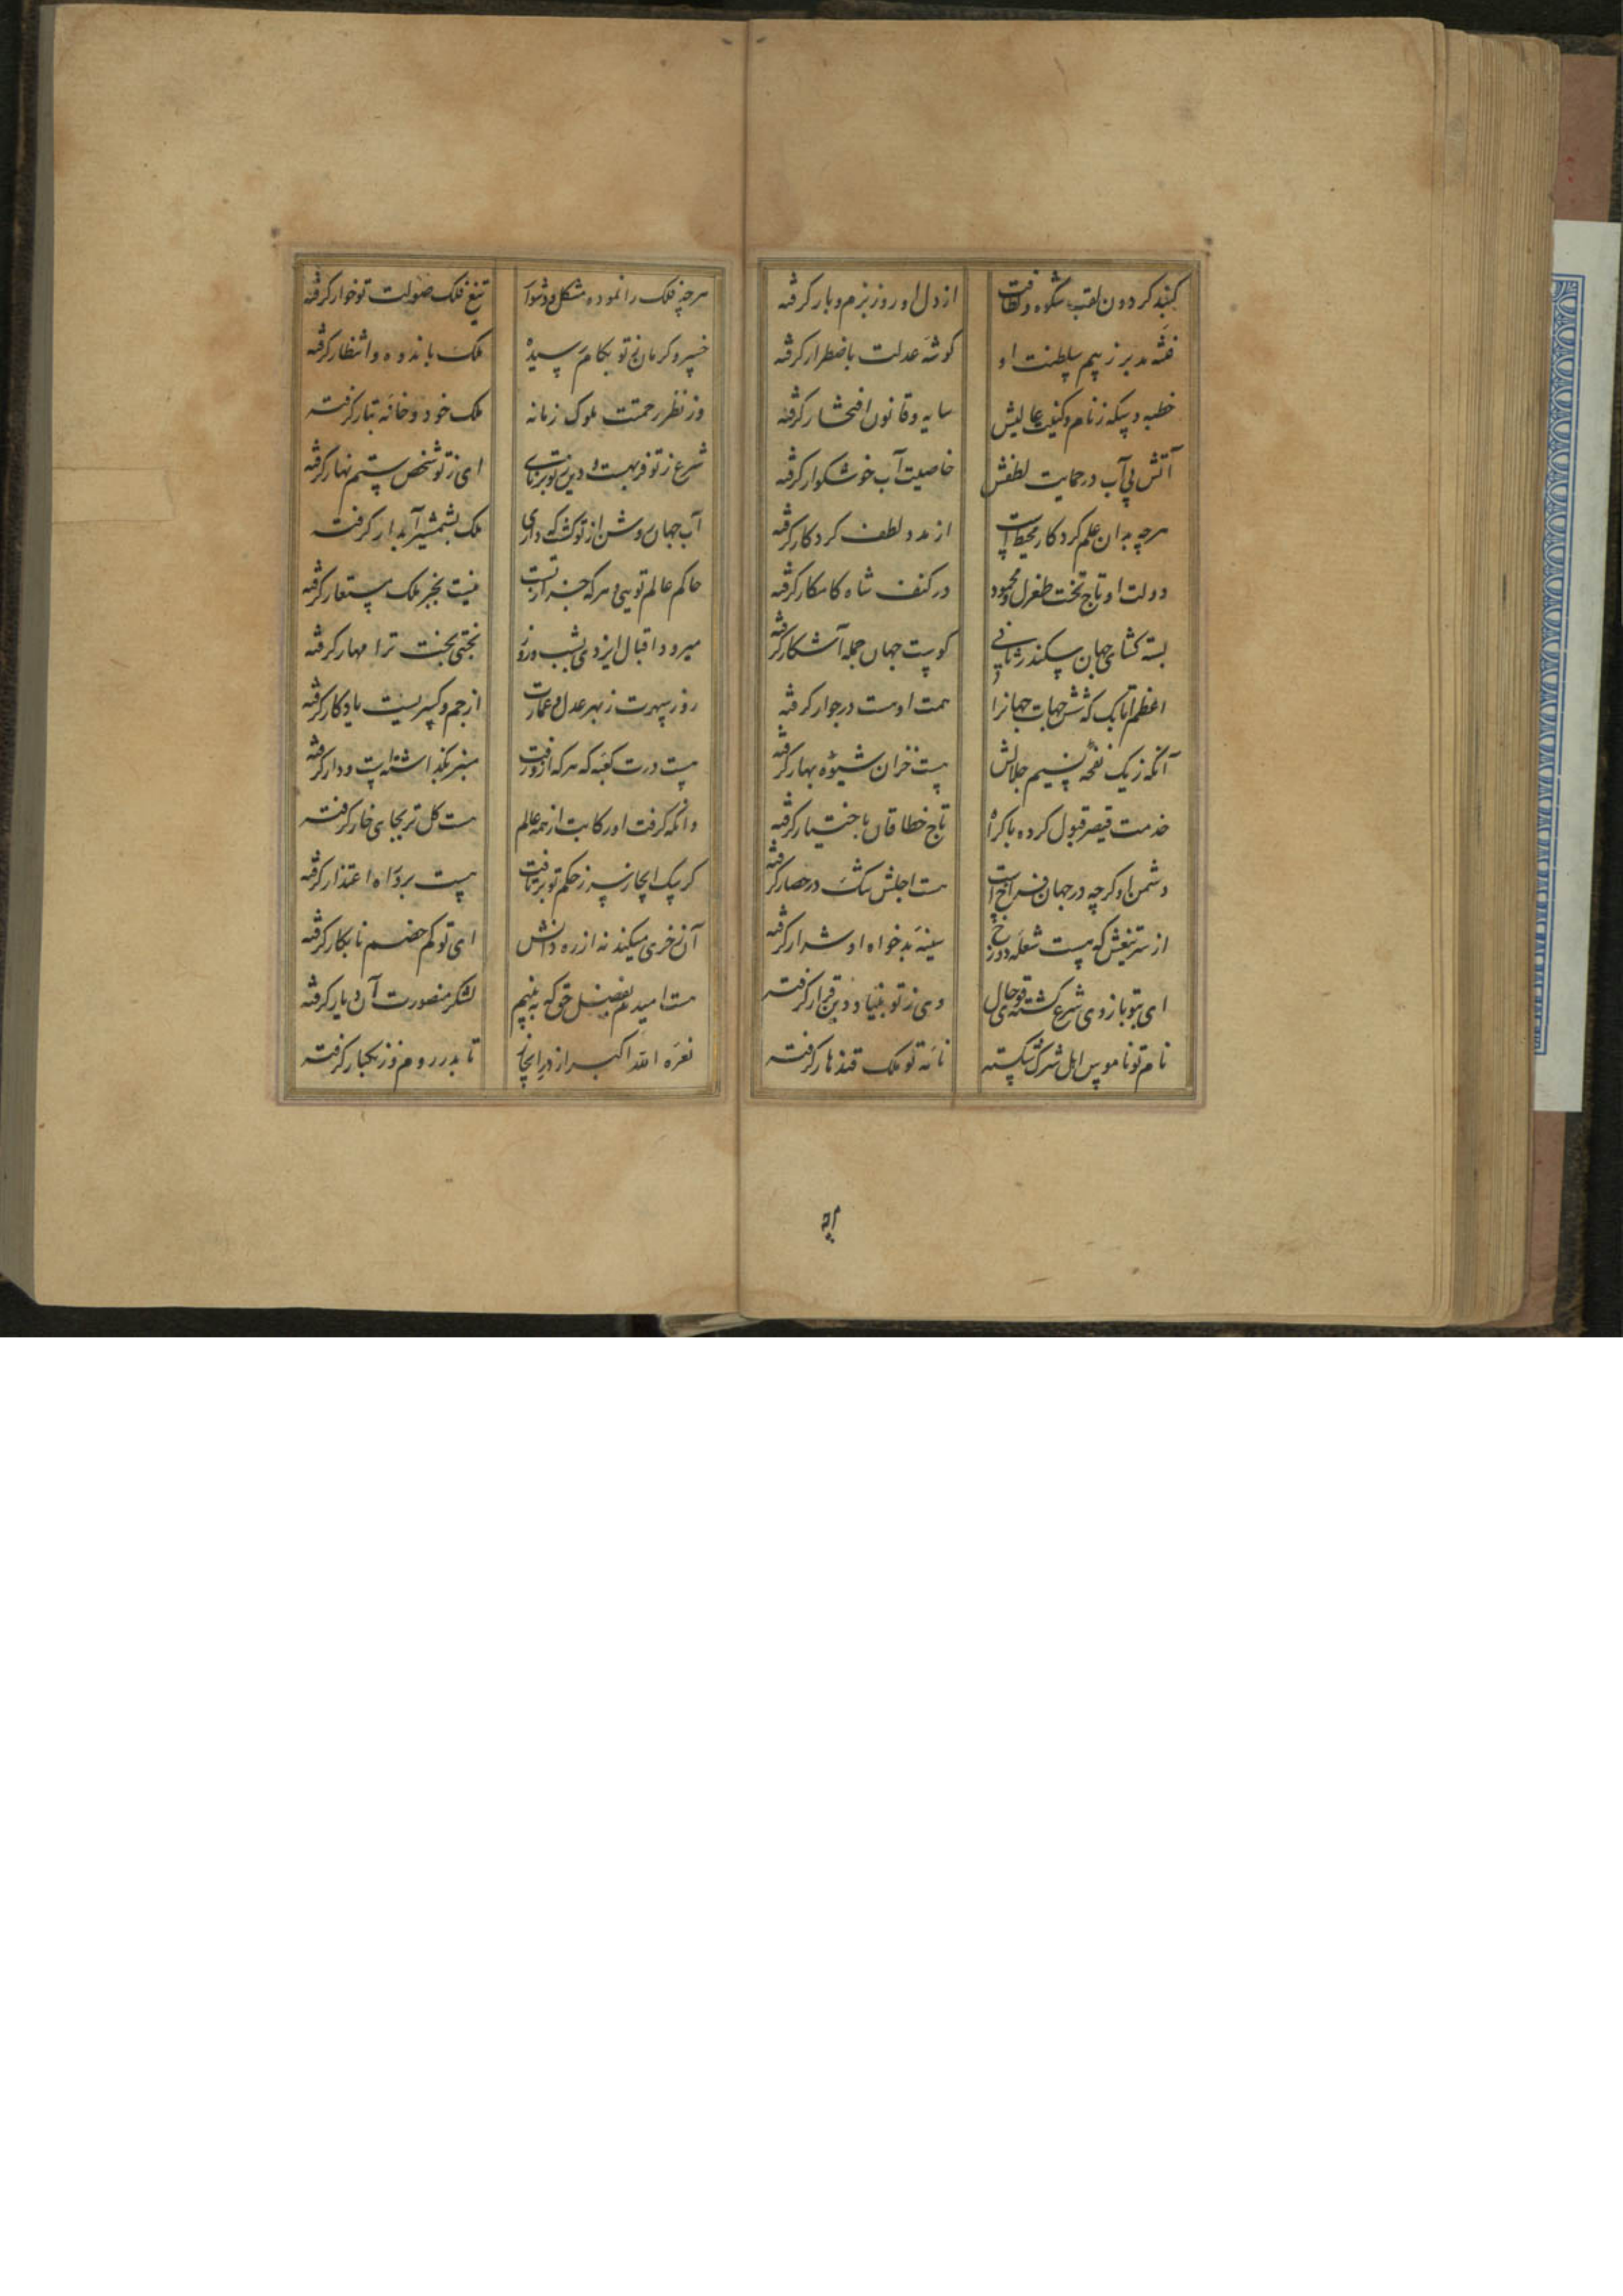 گنبد گردون لقب شکوه و لطافت از دل او روز بزم و بار گرفته
فتنه مدبر ز بیم سلطنت او گوشه عدلت باضطرار گرفته
خطبه و سکه ز نام و کنیت عالیش سایه و قانون افتخار گرفته
آتش بی آب در حمایت لطفش خاصیت آب خوشگوار گرفته
هرچه بدان علم کردگار محیط است از مدد لطف کردگار گرفته
دولت او تاج تخت طغرل و محمود در کنف شاه کامکار گرفته
بسته گشای جهان سکندر ثانی کوست جهان جمله آشکار گرفته
اعظم اتابک که شش جهات جهانرا همت اوست در جوار گرفته
آنکه ز یک نفحه نسیم جلالش هست خزان شیوه بهار گرفته
خدمت قیصر قبول کرده باکراه تاج خطا قان باختیار گرفته
دشمن او گرچه در جهان فراخ است هست اجلش تنگ در حصار گرفته
از سر تیغش که هست شعله دوزخ سینه بدخواه او شرار گرفته
ای بتو بازوی شرع گشته قوی حال وی ز تو بنیاد دین قرار گرفته
نام تو ناموس اهل شرک شکسته نامه تو ملک قندهار گرفته
هرچه فلک را نموده مشکل و دشوار تیغ فلک صولت تو خوار گرفته
خسرو کرمان ز تو بکام رسیده ملک باندوه و انتظار گرفته
وز نظر رحمتت ملوک زمانه ملک خود و خانه تبار گرفته
شرع ز تو فربهست و دین ز تو برپای ای ز تو شخص ستم نهار گرفته
آب جهان روشن از تو گشت که داری ملک بشمشیر آبدار گرفته
حاکم عالم تویی و هر که جز از تست نیست بجز ملک مستعار گرفته
میرود اقبال ایزدی بشب و روز بختی بخت ترا مهار گرفته
روز سپهرت ز بهر عدل و عمارت از جم و کسریت یادگار گرفته
هست درت کعبه که هر که ازو رفت منبر بگذاشته است و دار گرفته
وانکه گرفت او رکابت از همه عالم هست گل تر بجای خار گرفته
گر سگ ابخاز سر ز حکم تو برتافت هست برو راه اعتذار گرفته
آن ز خری میکند نه از ره دانش ای تو کم خصم نابکار گرفته
هست امیدم بفضل حق که ببینم لشکر منصورت آن دیار گرفته
نعره الله اکبر از در ابخاز تا بدر روم و زنگبار گرفته